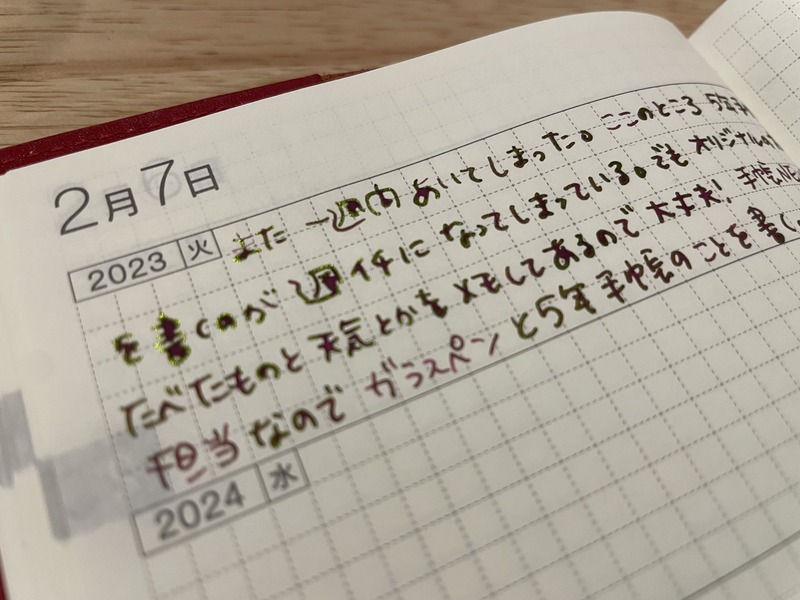 2月7日
2023 火
また一週間あいてしまった。ここのところ5年手
を書くのが週イチになってしまっている。でもオリジナル
たべたものと天気とかをメモしてあるので大丈夫!手帳
担当なのでガラスペンと5年手帳のことを書く
2024 水